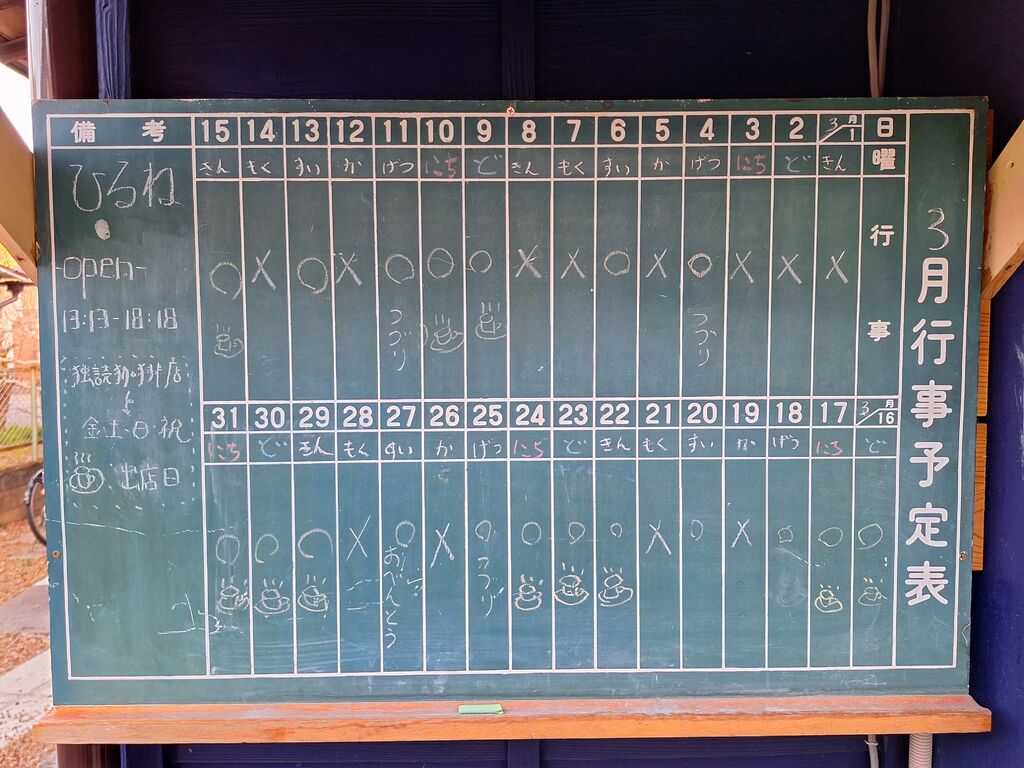 3月行事予定表
日 曜 行事
3月/1 きん X
2 ど X
3 にち X
4 げつ ○ つづり
5 か X
6 すい ○
7 もく X
8 きん X
9 ど ○
10 にち ○
11 げつ ○ つづり
12 か X
13 すい ○
14 もく X
15 きん ○
3月/16 ど ○
17 にち ○
18 げつ ○
19 か X
20 すい ○
21 もく X
22 きん ○
23 ど ○
24 にち ○
25 げつ ○ つづり
26 か X
27 すい ○ おべんとう
28 もく X
29 きん ○
30 ど ○
31 にち ○
備考
ひるね
-open-
13:13-18:18
金土日祝
出店日